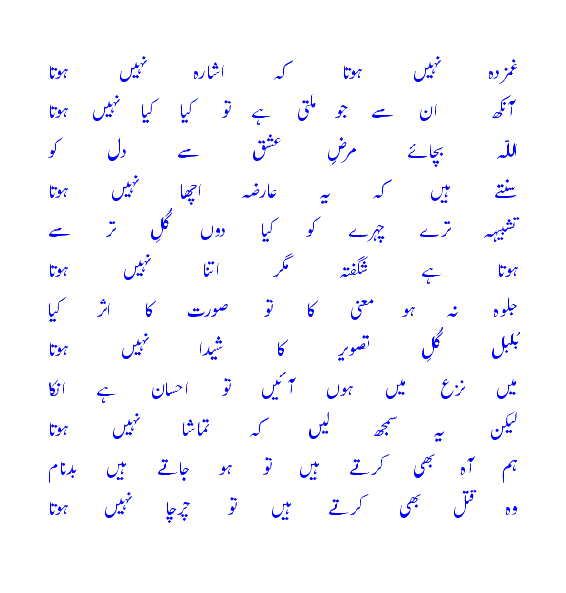 غمزدہ نہیں ہوتا کہ اشارہ نہیں ہوتا
آنکھ ان سے جو ملتی ہے تو کیا کیا نہیں ہوتا
اللہ بچائے مرضِ عشق سے دل کو
سنتے ہیں کہ یہ عارضہ اچھا نہیں ہوتا
تشبیہہ ترے چہرے کو کیا دوں گلِ تر سے
ہوتا ہے شگفتہ مگر اتنا نہیں ہوتا
جلوہ نہ ہو معنی کا تو صورت کا اثر کیا
بُلبل گلِ تصویر کا شیدا نہیں ہوتا
میں نزع میں ہوں آئیں تو احسان ہے انکا
لیکن یہ سمجھ لیں کہ تماشا نہیں ہوتا
ہم آہ بھی کرتے ہیں تو ہو جاتے ہیں بدنام
وہ قتل بھی کرتے ہیں تو چرچا نہیں ہوتا